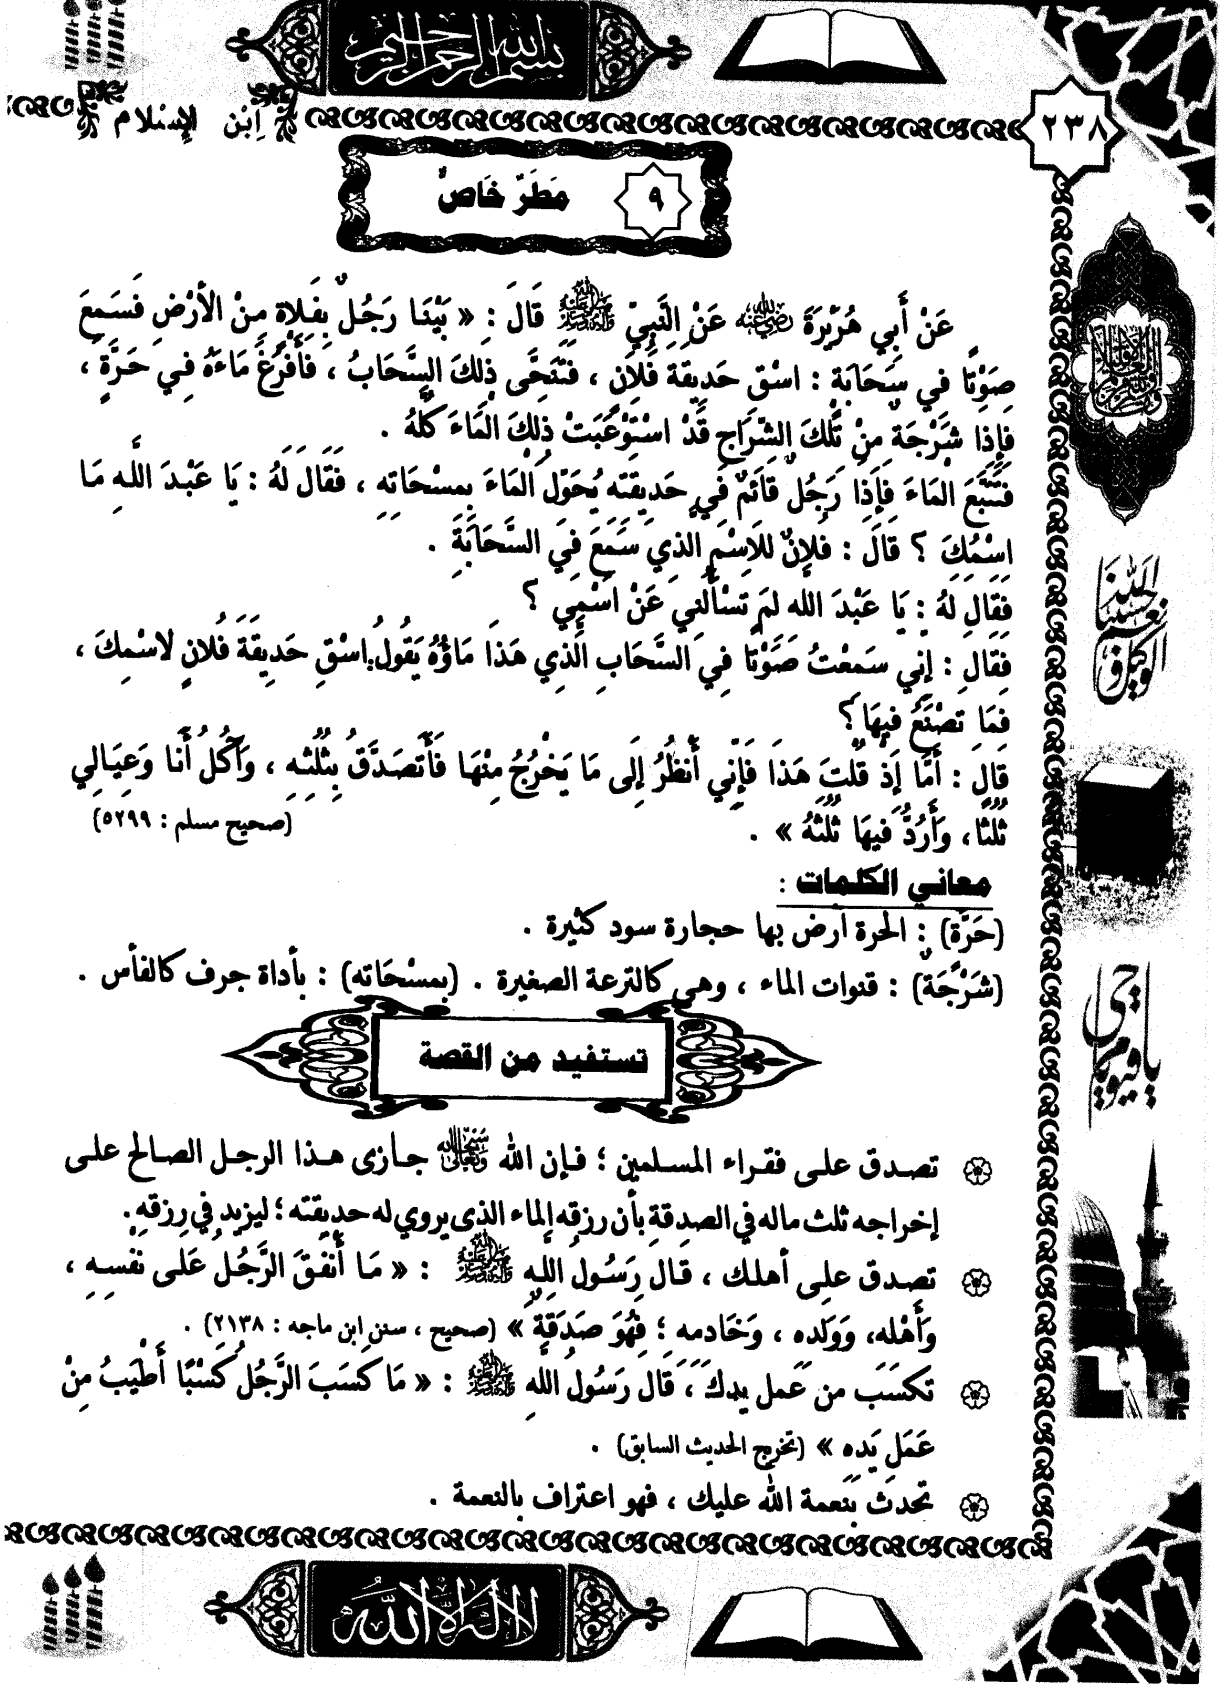 بسم الله الرحمن الرحيم
ابن الإسلام
٢٣٨
٩ مَطَرٌ خَاصٌّ
عَنْ أَبِي هُرَيْرَةَ رضي الله عنه عَنْ النَّبِيِّ صلى الله عليه وآله وسلم قَالَ : « بَيْنَا رَجُلٌ بِفَلاةٍ مِنْ الأَرْضِ فَسَمِعَ
صَوْتًا فِي سَحَابَةٍ : اسْقِ حَدِيقَةَ فُلانٍ ، فَتَنَحَّى ذَلِكَ السَّحَابُ ، فَأَفْرَغَ مَاءَهُ فِي حَرَّةٍ ،
فَإِذَا شَرْجَةٌ مِنْ تِلْكَ الشِّرَاجِ قَدْ اسْتَوْعَبَتْ ذَلِكَ الْمَاءَ كُلَّهُ .
فَتَتَبَّعَ الْمَاءَ فَإِذَا رَجُلٌ قَائِمٌ فِي حَدِيقَتِهِ يُحَوِّلُ الْمَاءَ بِمِسْحَاتِهِ ، فَقَالَ لَهُ : يَا عَبْدَ اللهِ مَا
اسْمُكَ ؟ قَالَ : فُلانٌ لِلاسْمِ الَّذِي سَمِعَ فِي السَّحَابَةِ .
فَقَالَ لَهُ : يَا عَبْدَ اللهِ لِمَ تَسْأَلُنِي عَنْ اسْمِي ؟
فَقَالَ : إِنِّي سَمِعْتُ صَوْتًا فِي السَّحَابِ الَّذِي هَذَا مَاؤُهُ يَقُولُ:اسْقِ حَدِيقَةَ فُلانٍ لاسْمِكَ ،
فَمَا تَصْنَعُ فِيهَا ؟
قَالَ : أَمَّا إِذْ قُلْتَ هَذَا فَإِنِّي أَنْظُرُ إِلَى مَا يَخْرُجُ مِنْهَا فَأَتَصَدَّقُ بِثُلُثِهِ ، وَآكُلُ أَنَا وَعِيَالِي
ثُلُثًا ، وَأَرُدُّ فِيهَا ثُلُثَهُ » . (صحيح مسلم : ٥٢٩٩)
معاني الكلمات :
(حَرَّة) : الحرة أرض بها حجارة سود كثيرة .
(شَرْجَةٌ) : قنوات الماء ، وهي كالترعة الصغيرة . (بِمِسْحَاتِهِ) : بأداة جرف كالفأس .
تستفيد من القصة
تصدق على فقراء المسلمين ؛ فإن الله سبحانه وتعالى جازى هذا الرجل الصالح على
إخراجه ثلث ماله في الصدقة بأن رزقه الماء الذي يروي له حديقته ؛ ليزيد في رزقه .
تصدق على أهلك ، قَالَ رَسُولُ اللهِ صلى الله عليه وآله وسلم : « مَا أَنْفَقَ الرَّجُلُ عَلَى نَفْسِهِ ،
وَأَهْلِهِ، وَوَلَدِهِ ، وَخَادِمِهِ ؛ فَهُوَ صَدَقَةٌ » (صحيح ، سنن ابن ماجه : ٢١٣٨) .
تَكَسَّب من عَمَلِ يدك ، قَالَ رَسُولُ اللهِ صلى الله عليه وآله وسلم : « مَا كَسَبَ الرَّجُلُ كَسْبًا أَطْيَبُ مِنْ
عَمَلِ يَدِهِ » (تخريج الحديث السابق) .
تحدث بنعمة الله عليك ، فهو اعتراف بالنعمة .
حسبنا الله ونعم الوكيل
يا حي يا قيوم
لا إله إلا الله